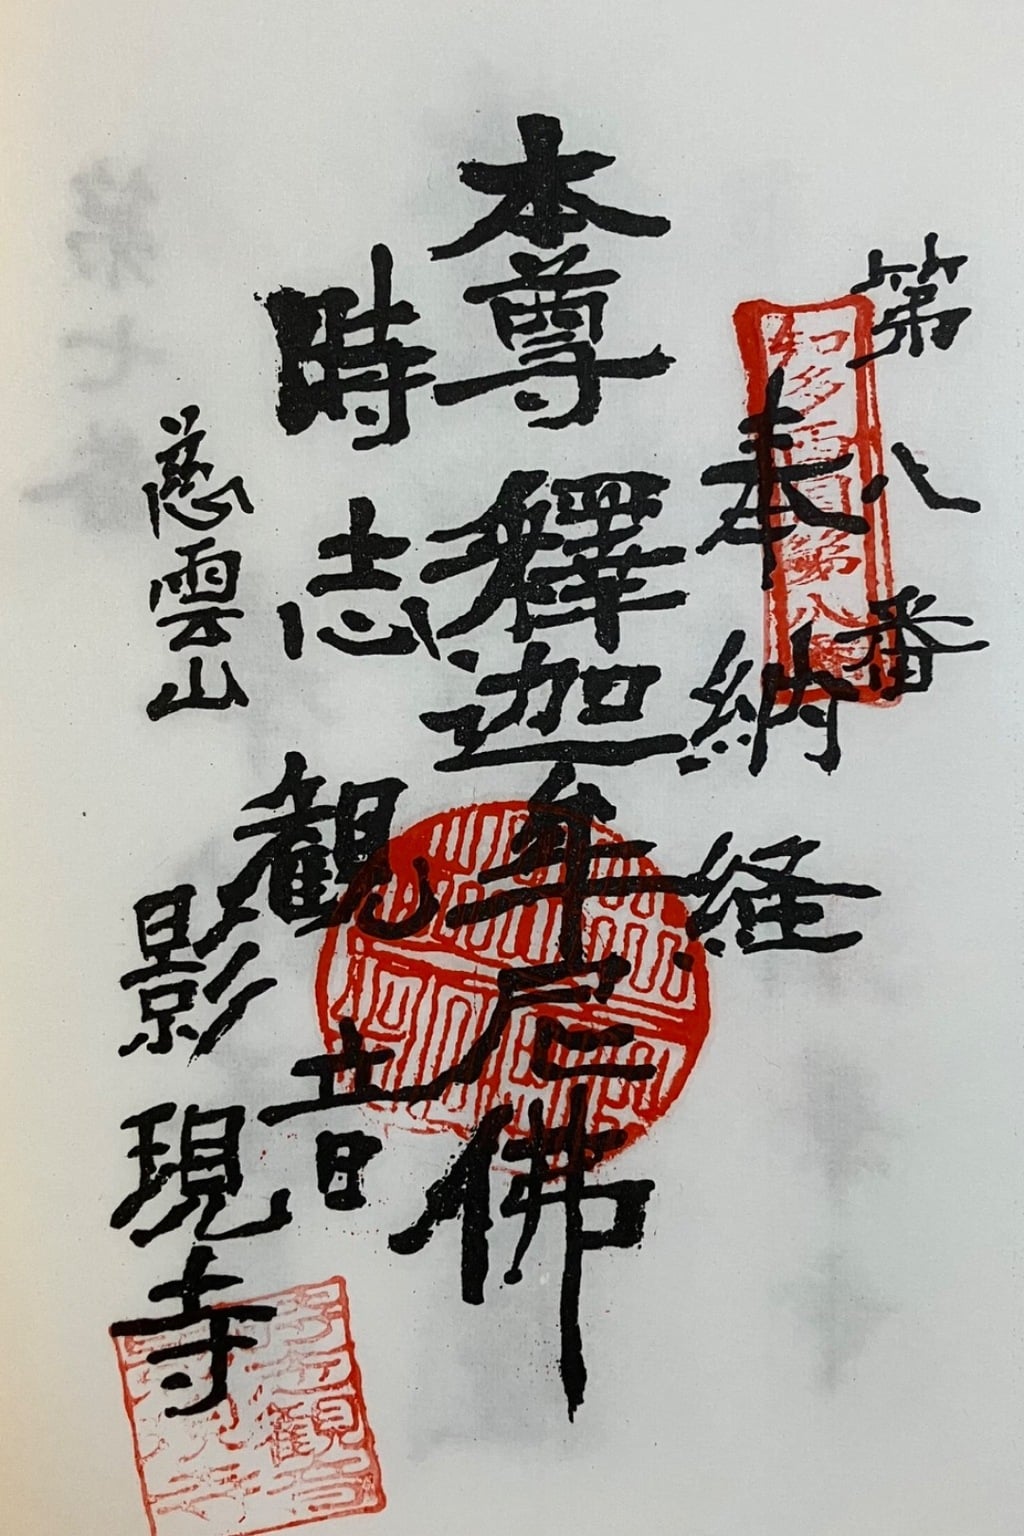 第八番
知多西国第八番
奉納経
本尊釋迦牟尼佛
時志観音
慈雲山
影現寺